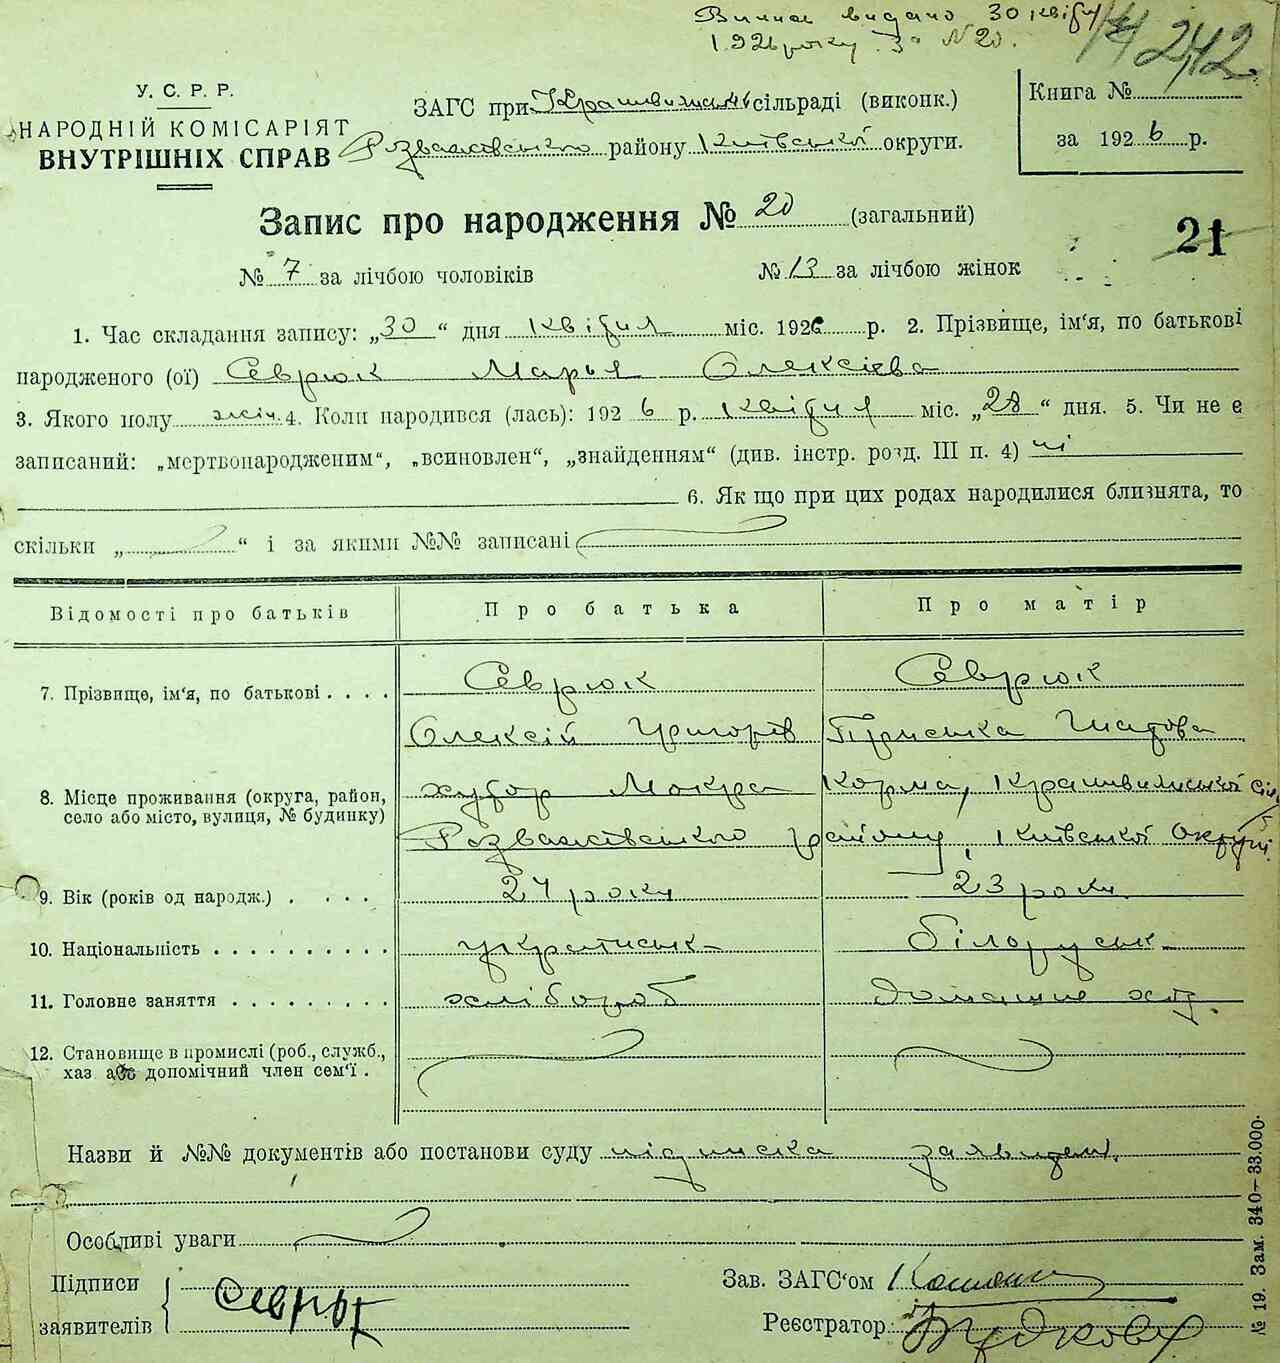 Випис видано 30 квітня
1926 року за №20.
242
У. С. Р. Р.
НАРОДНІЙ КОМІСАРІЯТ
ВНУТРІШНІХ СПРАВ
ЗАГС при сільраді (виконк.)
Розважівського району Київської округи.
Книга №
за 1926 р.
Запис про народження № 20 (загальний)
21
№ 7 за лічбою чоловіків
№ 13 за лічбою жінок
1. Час складання запису: „30“ дня квітня міс. 1926 р. 2. Прізвище, ім‘я, по батькові
народженого (ої) Севрюк Марья Олексієва
3. Якого полу жіноч. 4. Коли народився (лась): 1926 р. квітня міс. „28“ дня. 5. Чи не є
записаний: „мертвонародженим“, „всиновлен“, „знайденням“ (див. інстр. розд. III п. 4) ні
6. Як що при цих родах народилися близнята, то
скільки „ “ і за якими №№ записані
Відомості про батьків
Про батька
Про матір
7. Прізвище, ім‘я, по батькові . . . .
Севрюк
Севрюк
Олексій Григорів
8. Місце проживання (округа, район,
село або місто, вулиця, № будинку)
хутор Мокра Корма, сіл.
Розважівського району, Київської округи
9. Вік (років од народж.) . . . . .
24 роки
23 роки
10. Національність . . . . . . . . . .
українськ-
білоруськ-
11. Головне заняття . . . . . . . . .
хлібороб
домашнє хоз.
12. Становище в промислі (роб., служб.,
хаз або допомічний член сем‘ї .
Назви й №№ документів або постанови суду підписка заявител.
Особливі уваги
Підписи
заявителів
Севрюк
Зав. ЗАГС‘ом
Реєстратор
№ 19. Зам. 340–33.000.